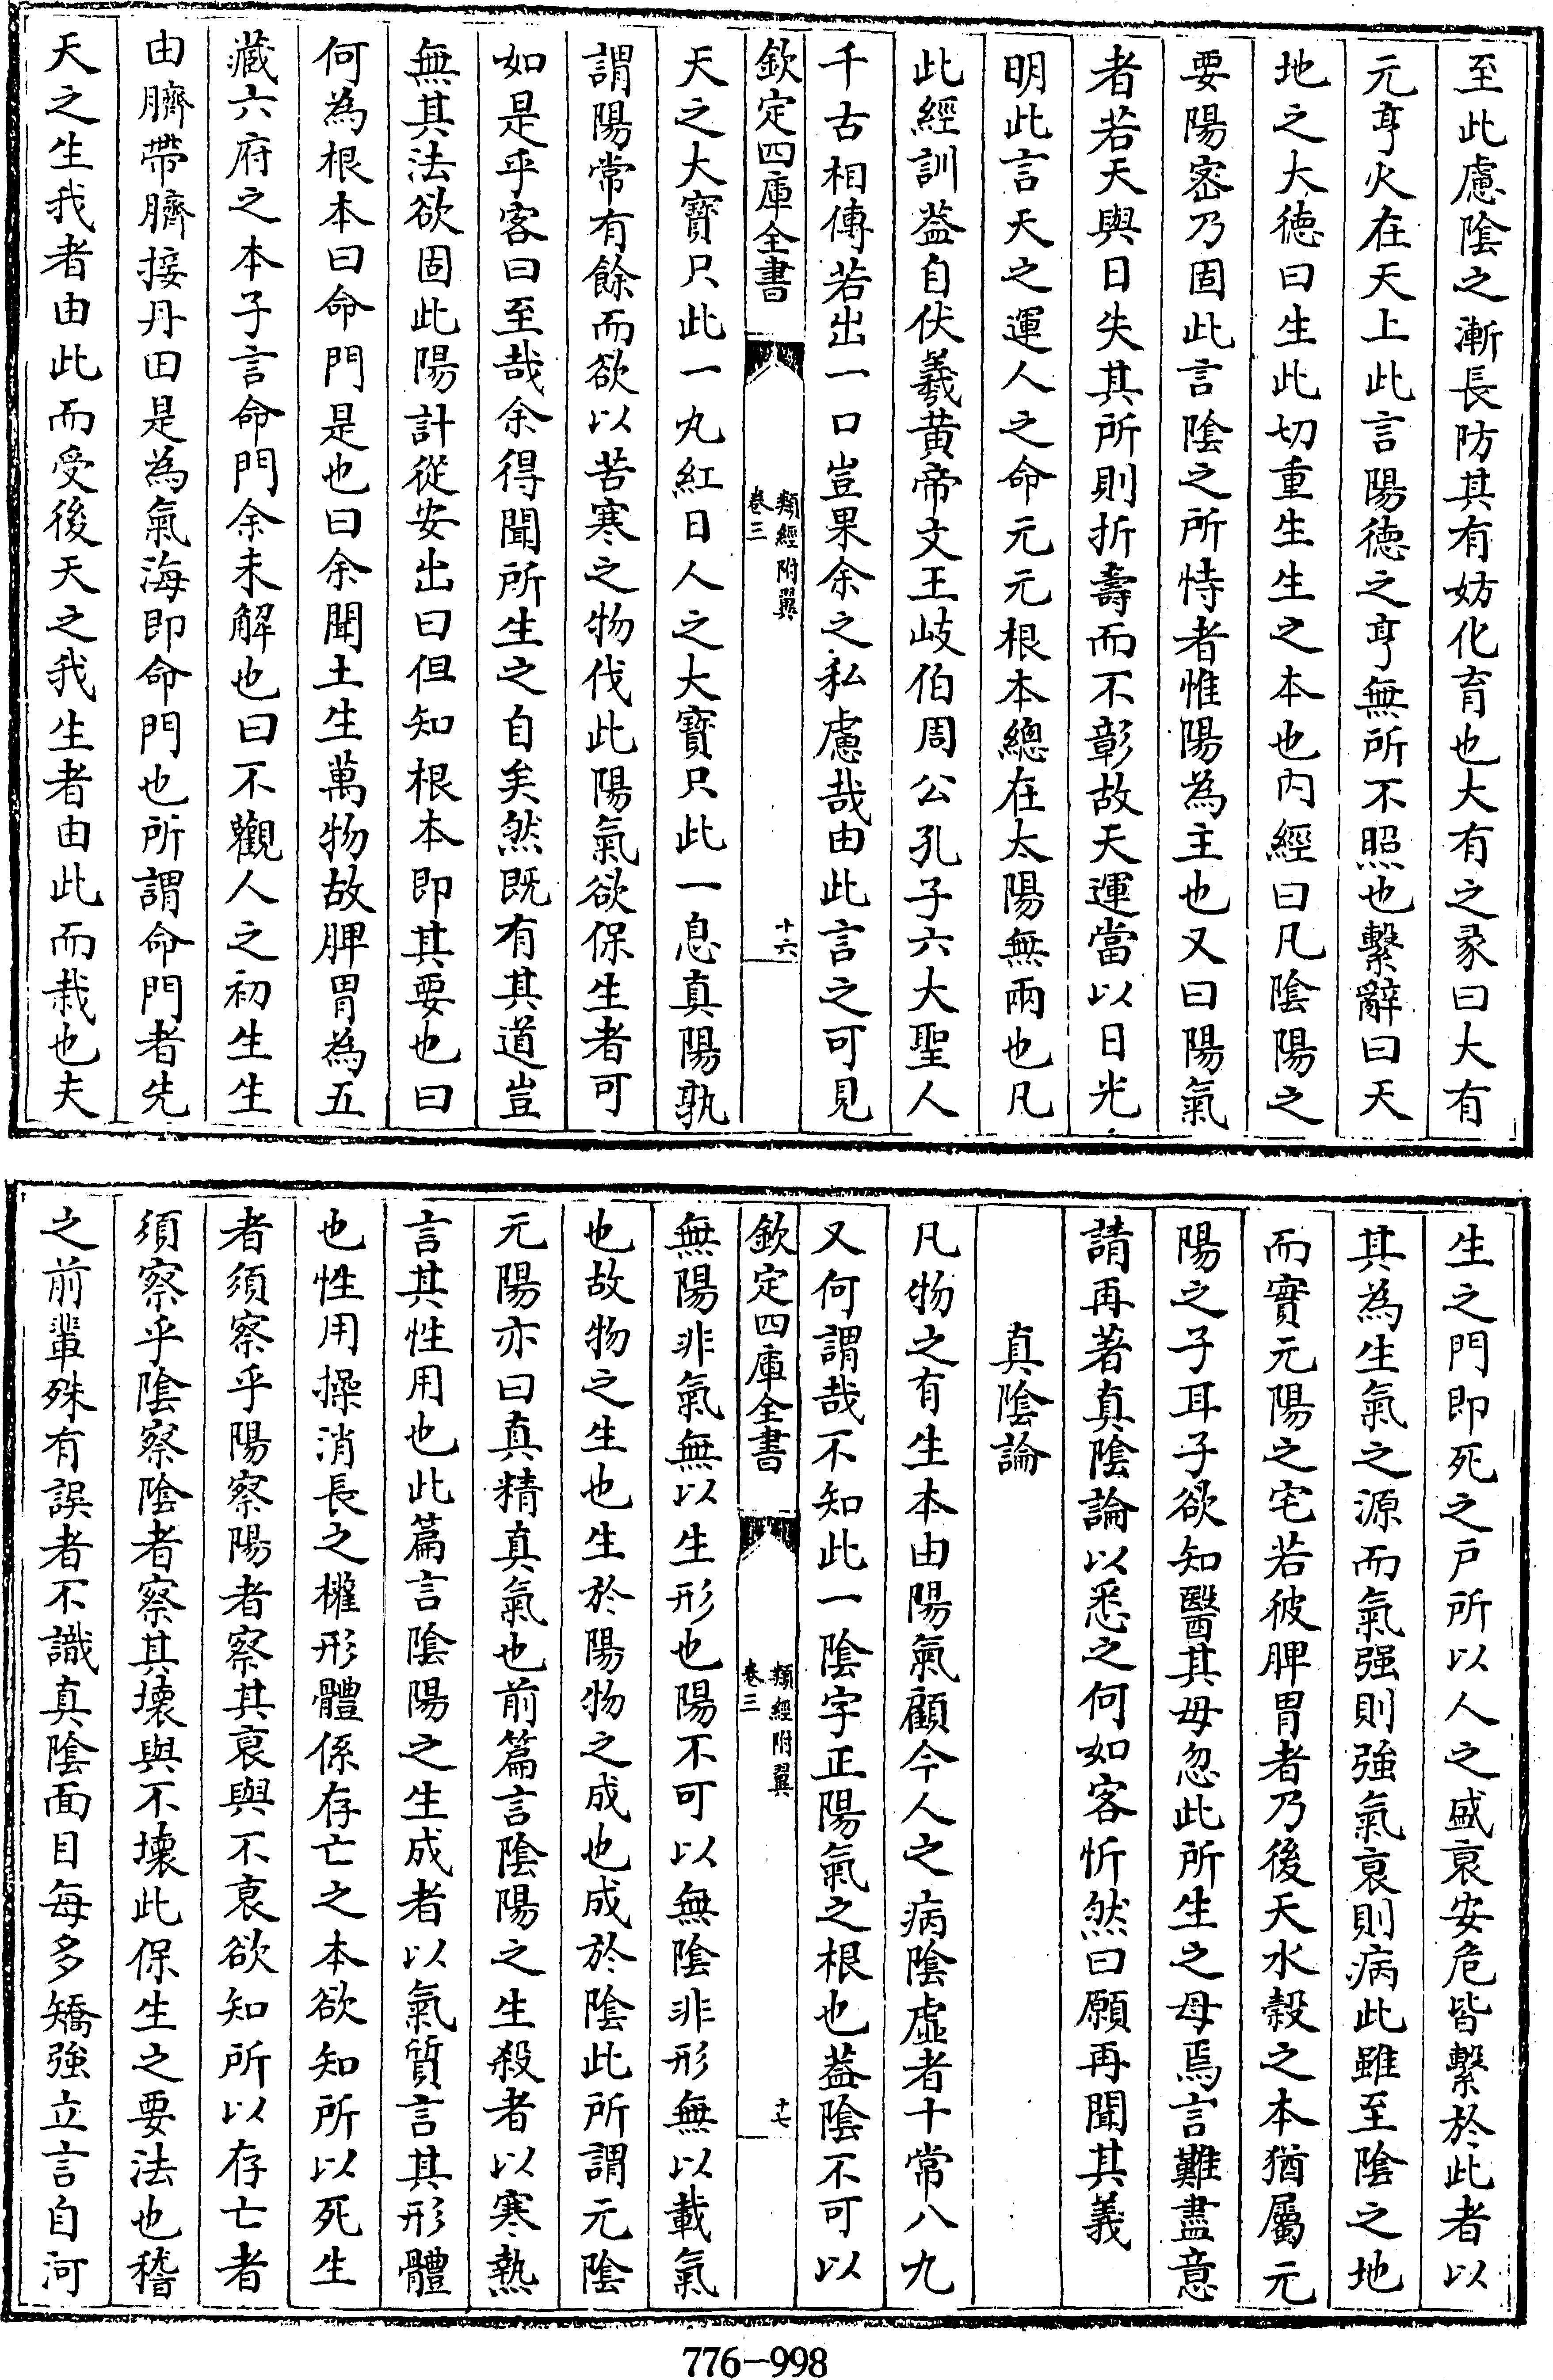 至此慮陰之漸長防其有妨化育也大有之彖曰大有
元亨火在天上此言陽德之亨無所不照也繫辭曰天
地之大德曰生此切重生生之本也内經曰凡陰陽之
要陽宻乃固此言陰之所恃者惟陽為主也又曰陽氣
者若天與日失其所則折壽而不彰故天運當以日光
明此言天之運人之命元元根本總在太陽無兩也凡
此經訓葢自伏羲黄帝文王岐伯周公孔子六大聖人
千古相傳若出一口豈果余之私慮哉由此言之可見
欽定四庫全書
類經附翼
卷三
十六
天之大寳只此一丸紅日人之大寳只此一息真陽孰
謂陽常有餘而欲以苦寒之物伐此陽氣欲保生者可
如是乎客曰至哉余得聞所生之自矣然既有其道豈
無其法欲固此陽計從安出曰但知根本即其要也曰
何為根本曰命門是也曰余聞土生萬物故脾胃為五
藏六府之本子言命門余未解也曰不觀人之初生生
由臍帶臍接丹田是為氣海即命門也所謂命門者先
天之生我者由此而受後天之我生者由此而栽也夫
生之門即死之戶所以人之盛衰安危皆繫於此者以
其為生氣之源而氣强則強氣衰則病此雖至陰之地
而實元陽之宅若彼脾胃者乃後天水榖之本猶屬元
陽之子耳子欲知醫其毋忽此所生之母焉言難盡意
請再著真陰論以悉之何如客忻然曰願再聞其義
真陰論
凡物之有生本由陽氣顧今人之病陰虛者十常八九
又何謂哉不知此一陰字正陽氣之根也葢陰不可以
欽定四庫全書
類經附翼
卷三
十七
無陽非氣無以生形也陽不可以無陰非形無以載氣
也故物之生也生於陽物之成也成於陰此所謂元陰
元陽亦曰真精真氣也前篇言陰陽之生殺者以寒熱
言其性用也此篇言陰陽之生成者以氣質言其形體
也性用操消長之權形體係存亡之本欲知所以死生
者須察乎陽察陽者察其衰與不衰欲知所以存亡者
須察乎陰察陰者察其壊與不壊此保生之要法也稽
之前輩殊有誤者不識真陰面目每多矯強立言自河
776-998